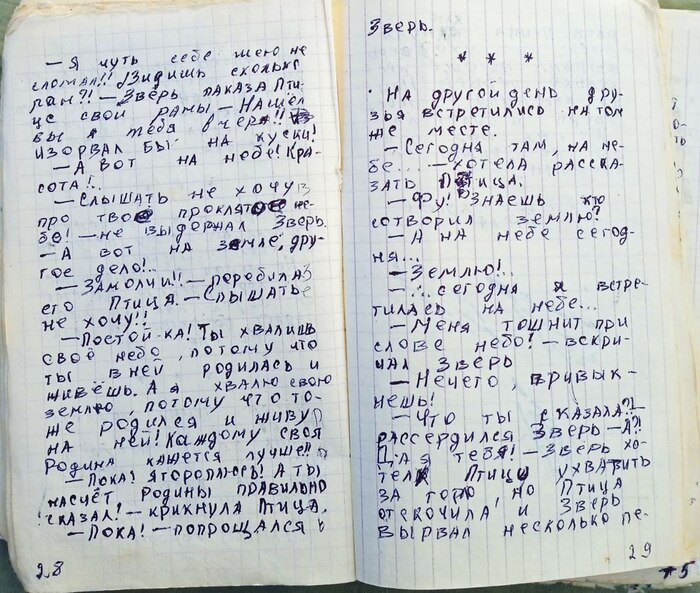 — Я чуть себе шею не
сломал!! Видишь сколько
ран?! — Зверь паказа Пти-
це свои раны — Нашёл
бы я тебя вчера!!
изорвал бы на куски!
— А вот на небе! Кра-
сота!..
— Слышать не хочу
про твоё проклятое не-
бе! — не выдержал Зверь.
— А вот на земле, дру-
гое дело!..
— Замолчи!! — перебила
его Птица. — Слышать
не хочу!!
— Постой-ка! Ты хвалишь
своё небо, потому что
ты в неи родилась и
живёшь. А я хвалю свою
землю, потому что то-
же родился и живу
на ней! Каждому своя
Родина кажется лучше!!
— Пока! яторoплюсь! А ты
насчёт родины правильно
сказал! — крикнула Птица.
— Пока! — попрощался
28
Зверь.
* * *
На другой день дру-
зья встретились на том
же месте.
— Сегодня там, на не-
бе... — хотела расска-
зать Птица.
— Фу! Знаешь кто
сотворил землю?
— А на небе сегод-
ня...
— Землю!..
— ... сегодня я встре-
тилась на небе...
— Меня тошнит при
слове небо! — вскри-
чал Зверь
— Нечего, привык-
нешь!
— Что ты сказала?!
рассердился Зверь — А?!
Да я тебя! — Зверь хо-
тел Птицу ухватить
за горло, но Птица
отскочила, и Зверь
вырвал несколько пе-
29
+5